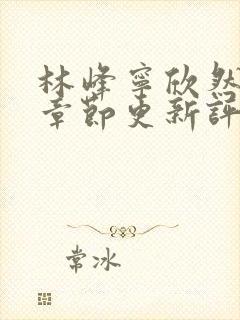 林峰寧欣然
章節更新評
常冰